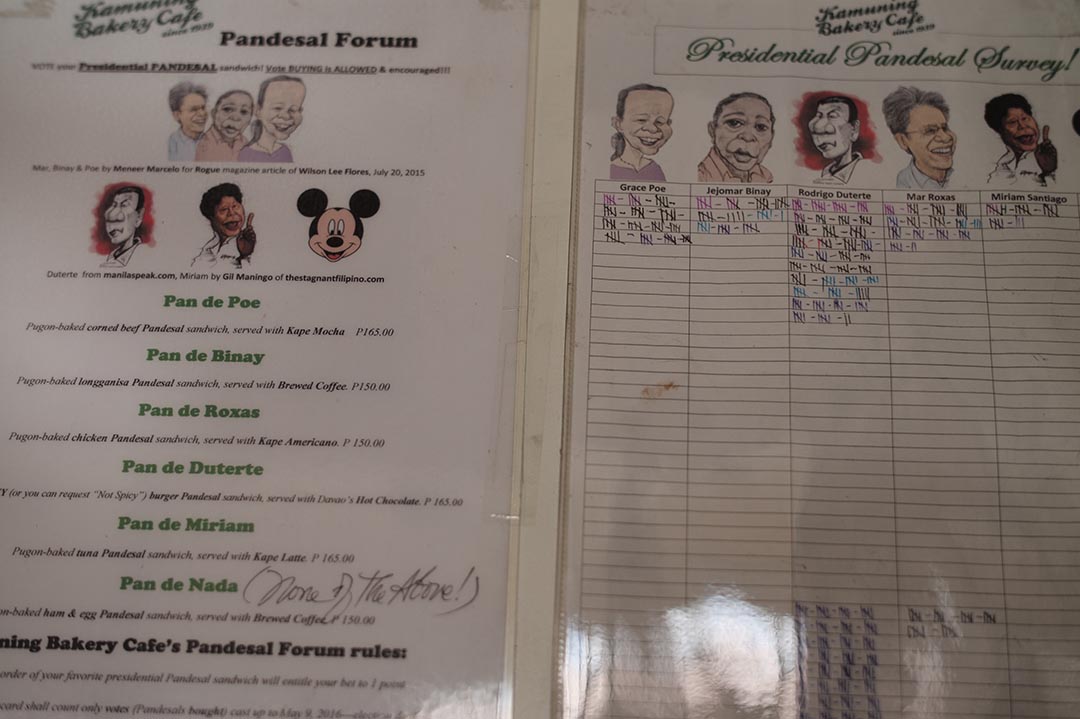 Kamuning
Bakery Cafe
since 1939
Pandesal Forum
VOTE your Presidential PANDESAL sandwich! Vote BUYING is ALLOWED & encouraged!!!
Mar, Binay & Poe by Meneer Marcelo for Rogue magazine article of Wilson Lee Flores, July 20, 2015
Duterte from manilaspeak.com, Miriam by Gil Maningo of thestagnantfilipino.com
Pan de Poe
Pugon-baked corned beef Pandesal sandwich, served with Kape Mocha P165.00
Pan de Binay
Pugon-baked longganisa Pandesal sandwich, served with Brewed Coffee. P150.00
Pan de Roxas
Pugon-baked chicken Pandesal sandwich, served with Kape Americano. P 150.00
Pan de Duterte
Y (or you can request "Not Spicy") burger Pandesal sandwich, served with Davao's Hot Chocolate. P 165.00
Pan de Miriam
Pugon-baked tuna Pandesal sandwich, served with Kape Latte. P 165.00
Pan de Nada (None of The Above!)
on-baked ham & egg Pandesal sandwich, served with Brewed Coffee. P 150.00
ning Bakery Cafe's Pandesal Forum rules:
order of your favorite presidential Pandesal sandwich will entitle your bet to 1 point
card shall count only votes (Pandesals bought) cast up to May 9, 2016—election
Kamuning
Bakery Cafe
since 1939
Presidential Pandesal Survey!
Grace Poe Jejomar Binay Rodrigo Duterte Mar Roxas Miriam Santiago